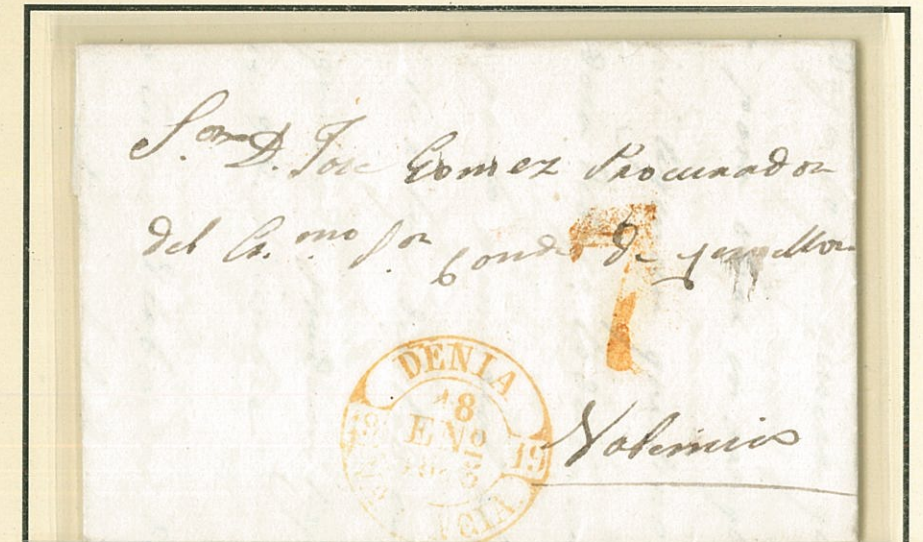 S.or D. Jose Gomez Procurador
del Ex.mo S.or Conde de
7
DENIA
18
ENº
19
Valencia